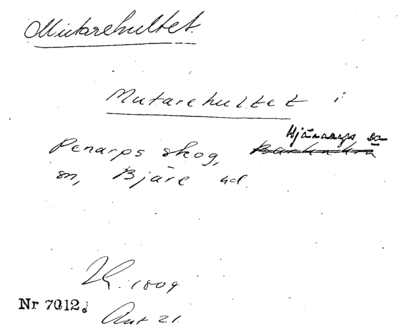 Mutarehultet.
Mutarehultet i
Hjärnarps sn
Penarps skog,
sn, Bjäre hd.
1809
Nr 7012.
Ant 21.